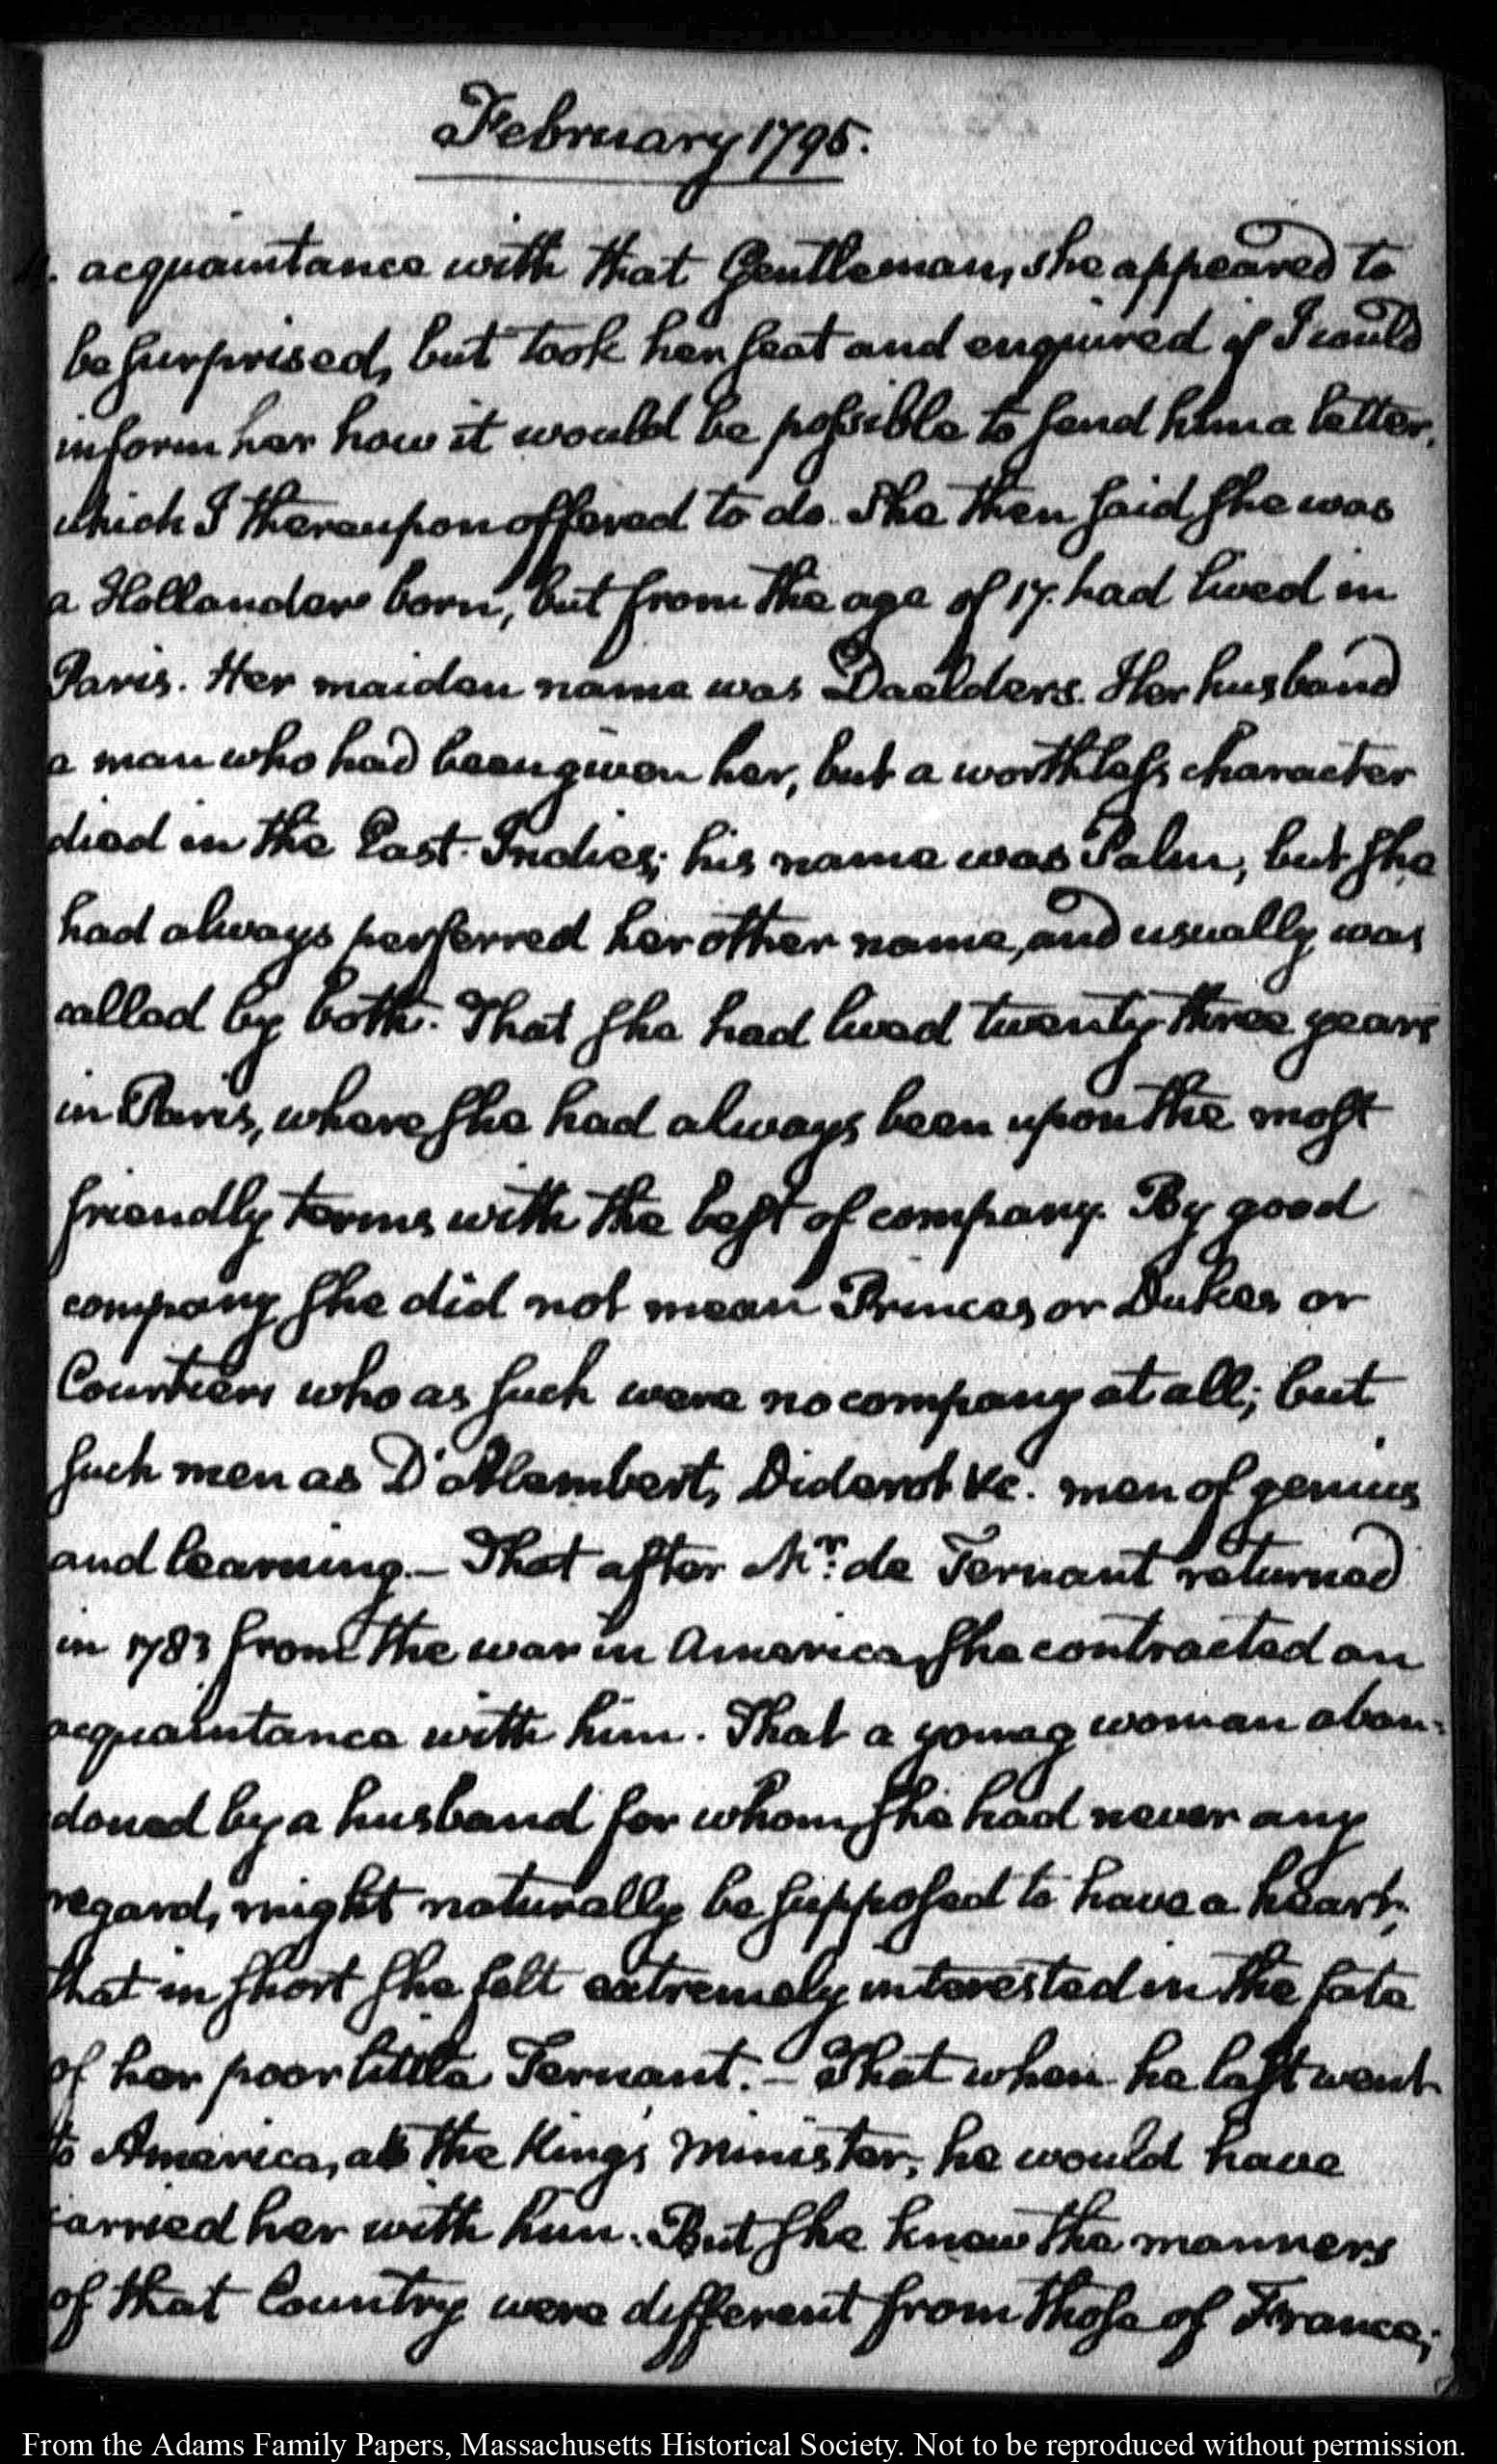 February 1795.
acquaintance with that Gentleman, she appeared to
be surprised, but took her seat and enquired if I could
inform her how it would be possible to send him a letter,
which I thereupon offered to do. She then said she was
a Hollander born, but from the age of 17. had lived in
Paris. Her maiden name was Daelders. Her husband
a man who had been given her, but a worthless character
died in the East-Indies; his name was Palm, but she
had always perferred her other name, and usually was
called by both. That she had lived twenty-three years
in Paris, where she had always been upon the most
friendly terms with the best of company. By good
company she did not mean Princes or Dukes or
Courtiers who as such were no company at all; but
such men as D'Alembert, Diderot &c. men of genius
and learning.— That after Mr: de Ternant returned
in 1783 from the war in America, she contracted an
acquaintance with him. That a young woman aban-
doned by a husband for whom she had never any
regard, might naturally be supposed to have a heart;
that in short she felt extremely interested in the fate
of her poor little Ternant.— That when he last went
to America, as the King's Minister, he would have
carried her with him. But she knew the manners
of that Country were different from those of France;
From the Adams Family Papers, Massachusetts Historical Society. Not to be reproduced without permission.